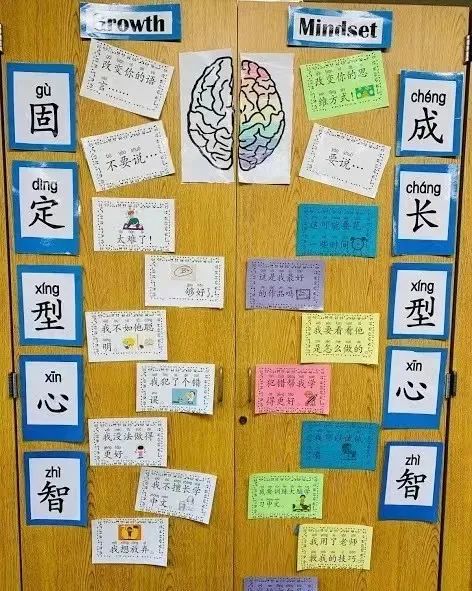 Growth
Mindset
gù
固
dìng
定
xíng
型
xīn
心
zhì
智
改变你的语
言……
不要说…
太难了！
够好
我不如他聪
明
我犯了个错
误
我没法做得
更好
我不擅长学
中文
我想放弃
改变你的思
维方式！
要说…
这可能要花
一些时间
这是我最好
的作品吗
我要看看他
是怎么做的
犯错帮我学
得更好
我要训练大脑学
习中文
我用了老师
教我的技巧
chéng
成
cháng
长
xíng
型
xīn
心
zhì
智